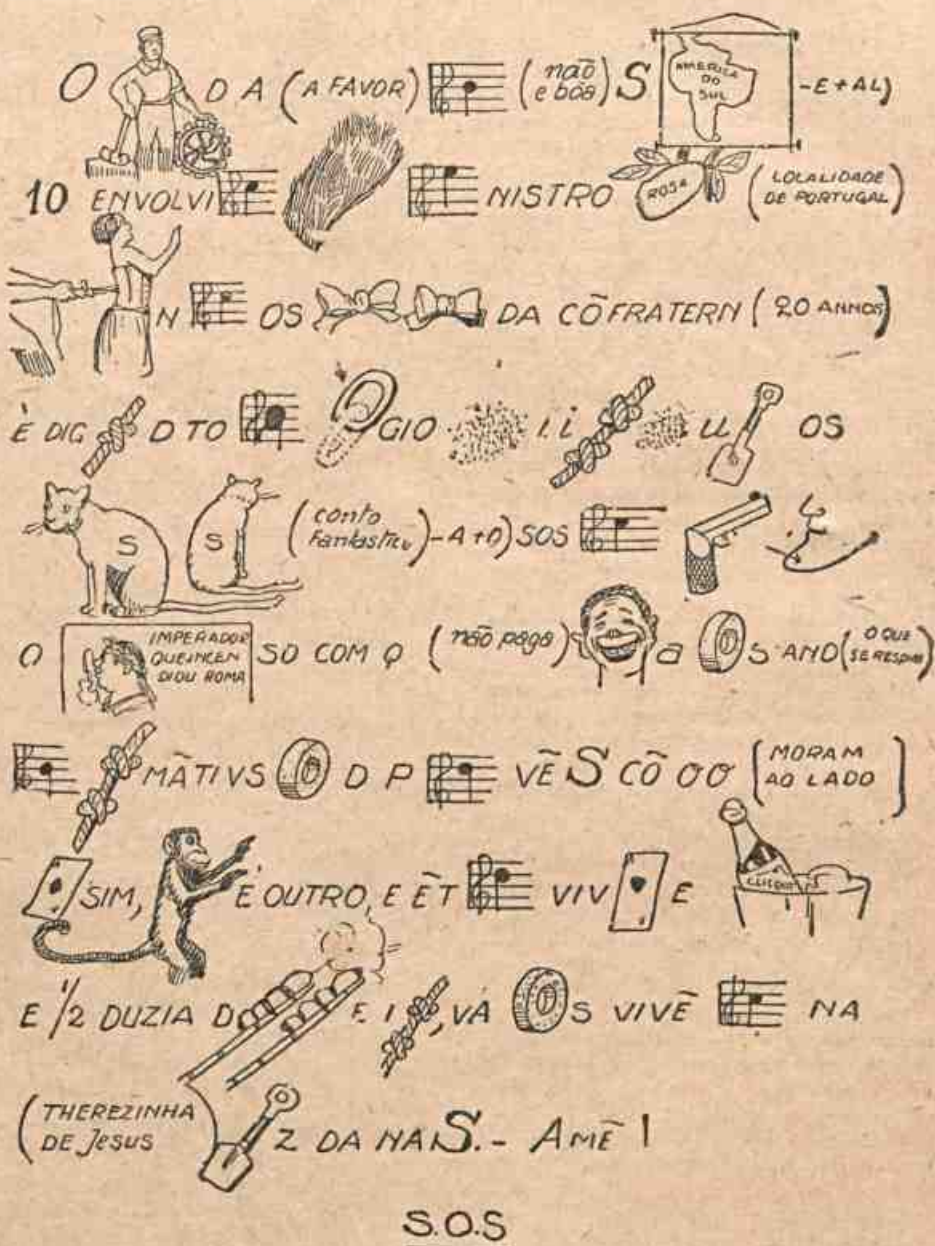 O D A (A FAVOR) (não e bôa) S AMERICA DO SUL -E+AL)
10 ENVOLVI NISTRO ROSA (LOLALIDADE DE PORTUGAL)
N OS DA CÕFRATERN (20 ANNOS)
È DIG D TO GIO I.i U OS
S S (conto Fantastico)-A+O) SOS
O IMPERADOR QUE INCEN DIOU ROMA SO COM Q (não paga) a S AND (O QUE SE RESPIRA)
MÃTIVS D P VẼ S CÕ OO (MORAM AO LADO)
SIM, É OUTRO, E ẼT VIV E CLICQUOT
E 1/2 DUZIA D E I, VÁ S VIVẼ NA
(THEREZINHA DE Jesus Z DA NAS.- AMẼ!
S.O.S